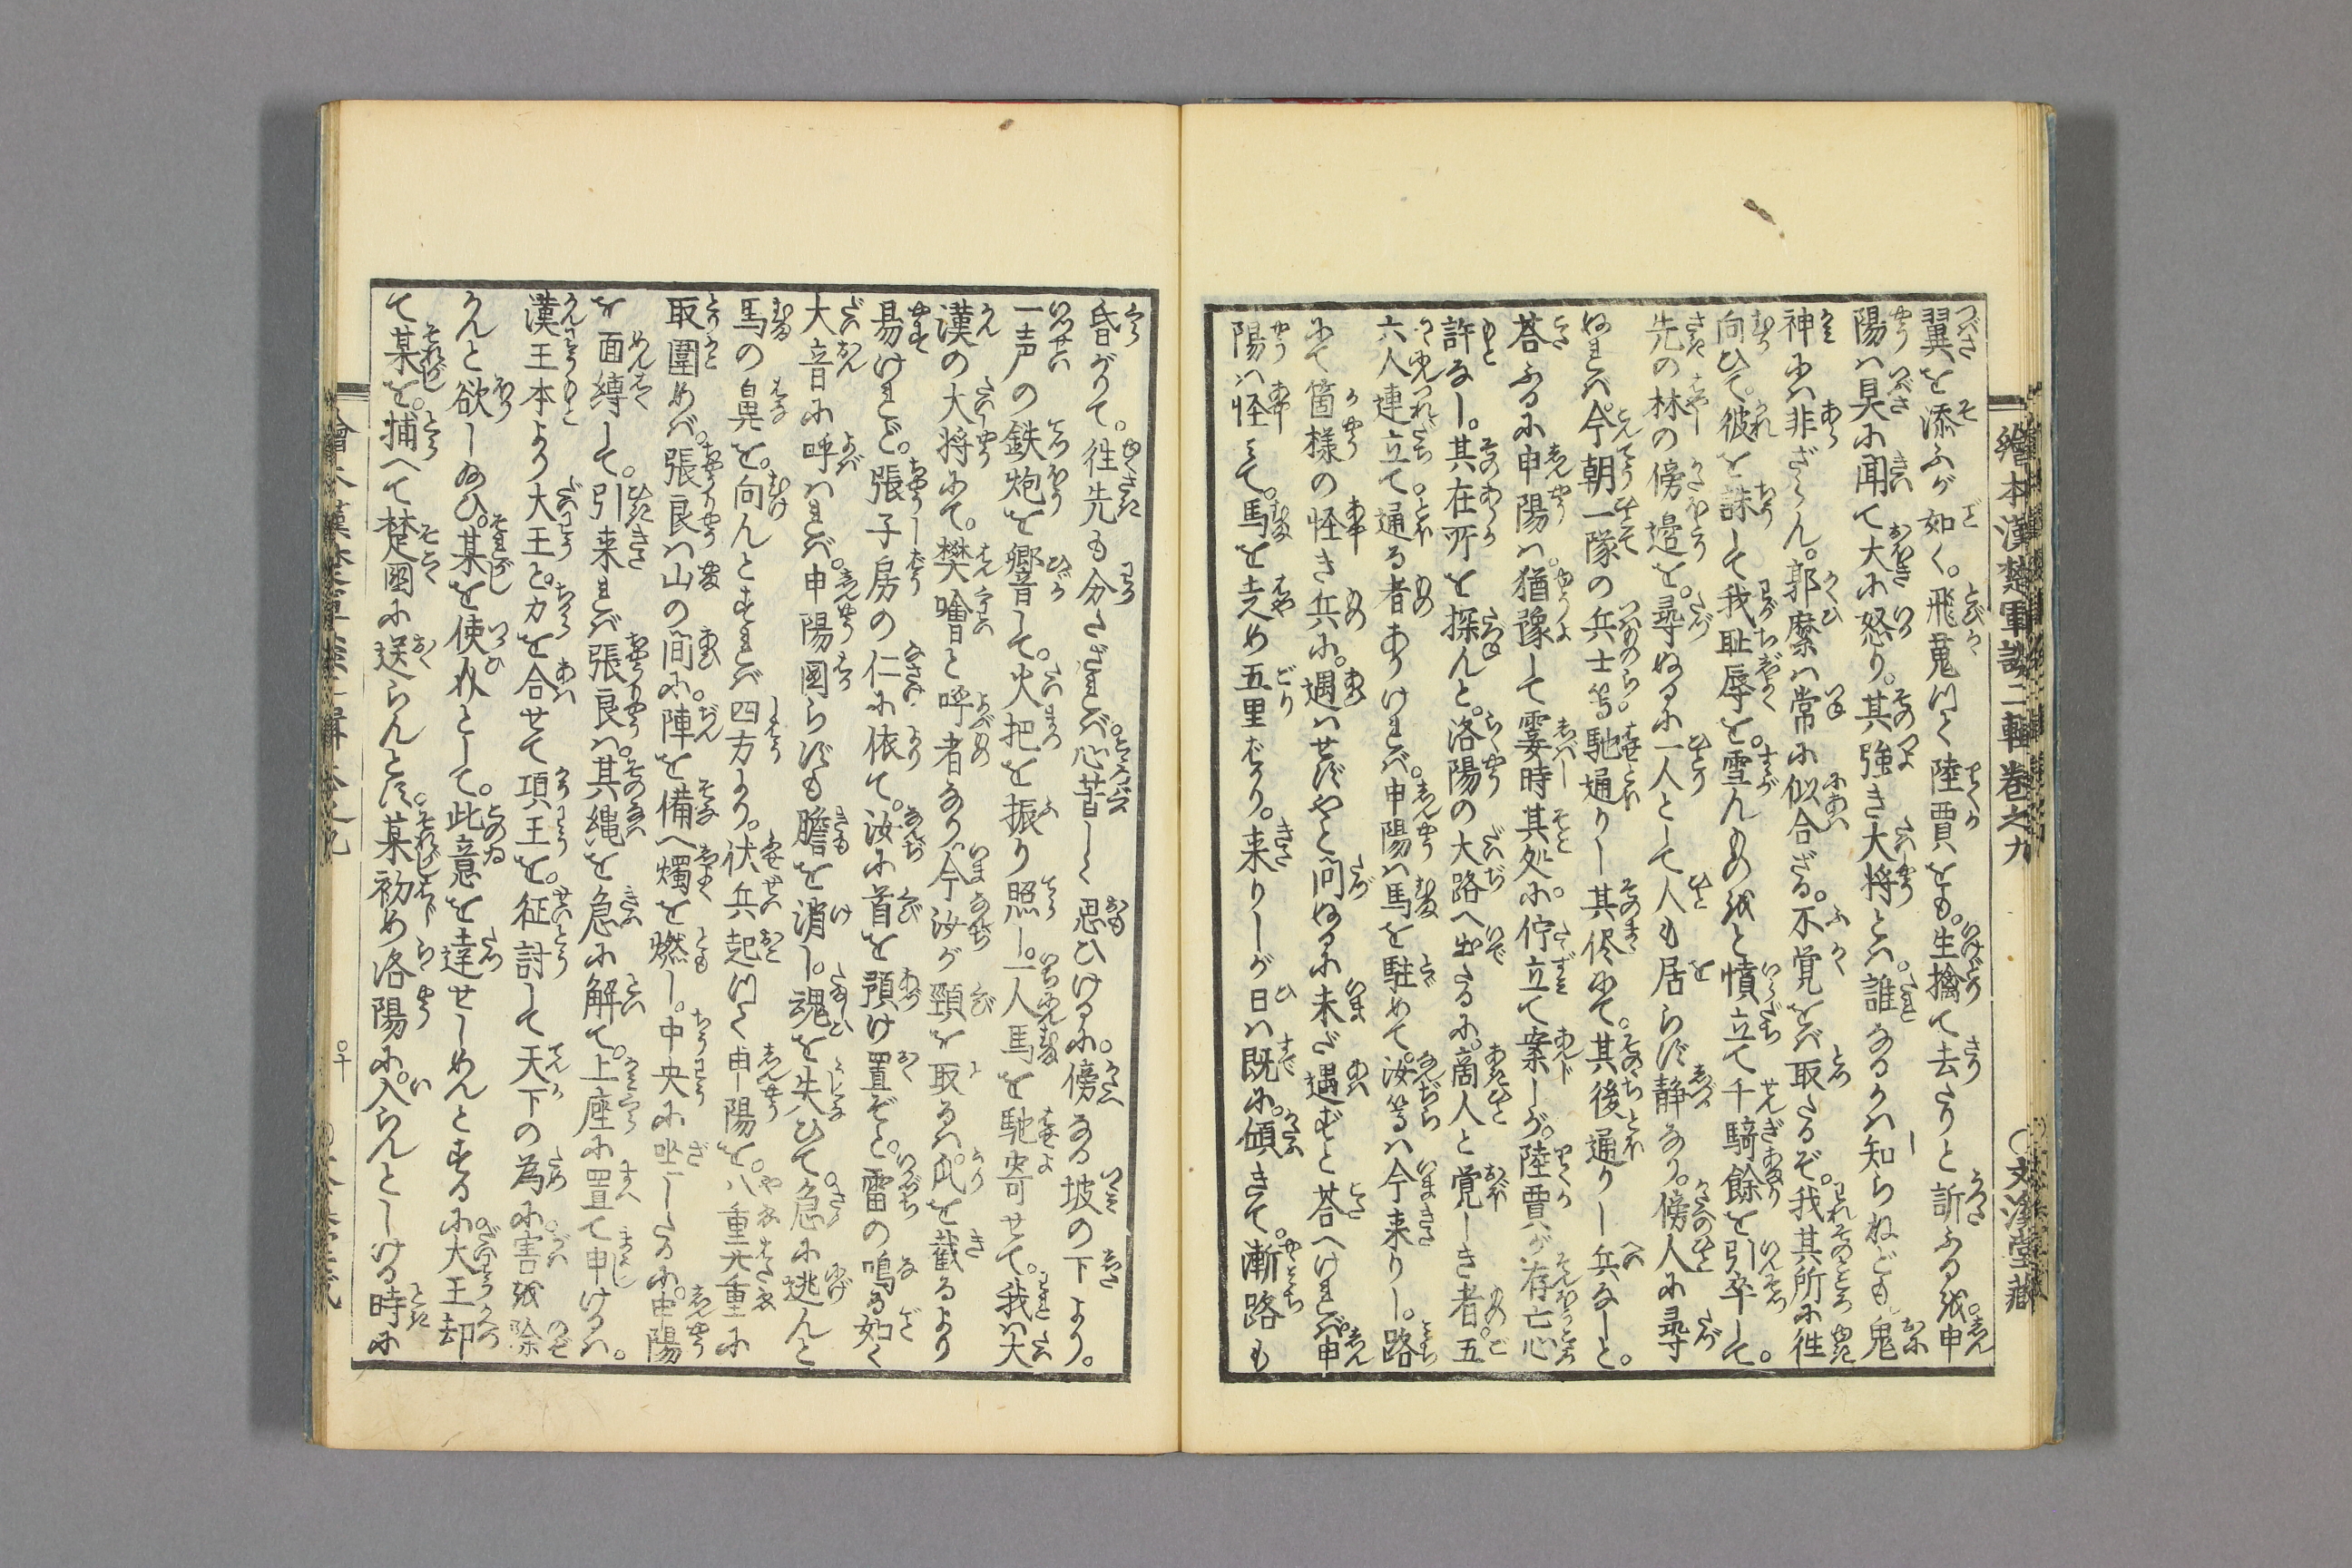 繪本漢楚軍談二輯卷之九
〇文溪堂藏
翼を添ふが如く。飛鳬して陸賈をも。生擒て去たりと訴ふる。申
陽ハ具に聞て大に怒り。其強き大将とハ。誰なるかハ知らねども鬼
神にハ非ざらん。郭縻ハ常に似合ざる。不覚をバ取たるぞ。我其所に徃
向ひて。彼を誅して我耻辱を。雪んものをと憤立て千騎餘を引卒して。
先の林の傍邉を。尋ぬるに一人として人も居らず静なり。傍人に尋
ぬれバ。今朝一隊の兵士等馳通りし其侭にて。其後通りし兵なしと。
荅ふるに申陽ハ。猶豫して霎時其処に。佇立て案しが。陸賈が存亡心
許なし。其在所を探んと。洛陽の大路へ出たるに。商人と覚しき者。五
六人連立て。通る者ありけれバ。申陽ハ馬を駐めて。汝等ハ今来りし。路
にて箇様の怪き兵に。遇ハせずやと問ぬるに未ざ遇ずと荅へけれバ。申
陽ハ怪みて。馬を走め五里ばかり。来りしが日ハ既に。傾きて。漸路も
昏がりて。徃先も分たざれバ。心苦しく思ひけるに。傍なる坡の下より。
一声の鉄炮を響して。火把を振り照し。一人馬を馳寄せて。我ハ大
漢の大将にて。樊噲と呼者なり。今汝が頸を取るハ。瓜を截るより
易けれど。張子房の仁に依て。汝に首を預け置ぞと。雷の鳴る如く
大音に呼ハれバ。申陽國らずも膽を消し。魂を失ひて。急に逃んと
馬の鼻を。向んとすれバ四方より。伏兵起つて申陽を。八重九重に
取圍めバ。張良ハ山の間に。陣を備へ燭を燃し。中央に坐したるに。申陽
を面縛して。引来れバ張良ハ。其縄を急に解て。上座に置て申けるハ。
漢王本より大王と。力を合せて項王を。征討して天下の為に。害を除
かんと欲し給ひ。某を使として。此意を達せしめんとするに大王却
て某を。捕へて楚國に送らんとす。某初め洛陽に。入らんとしける時に
〇十